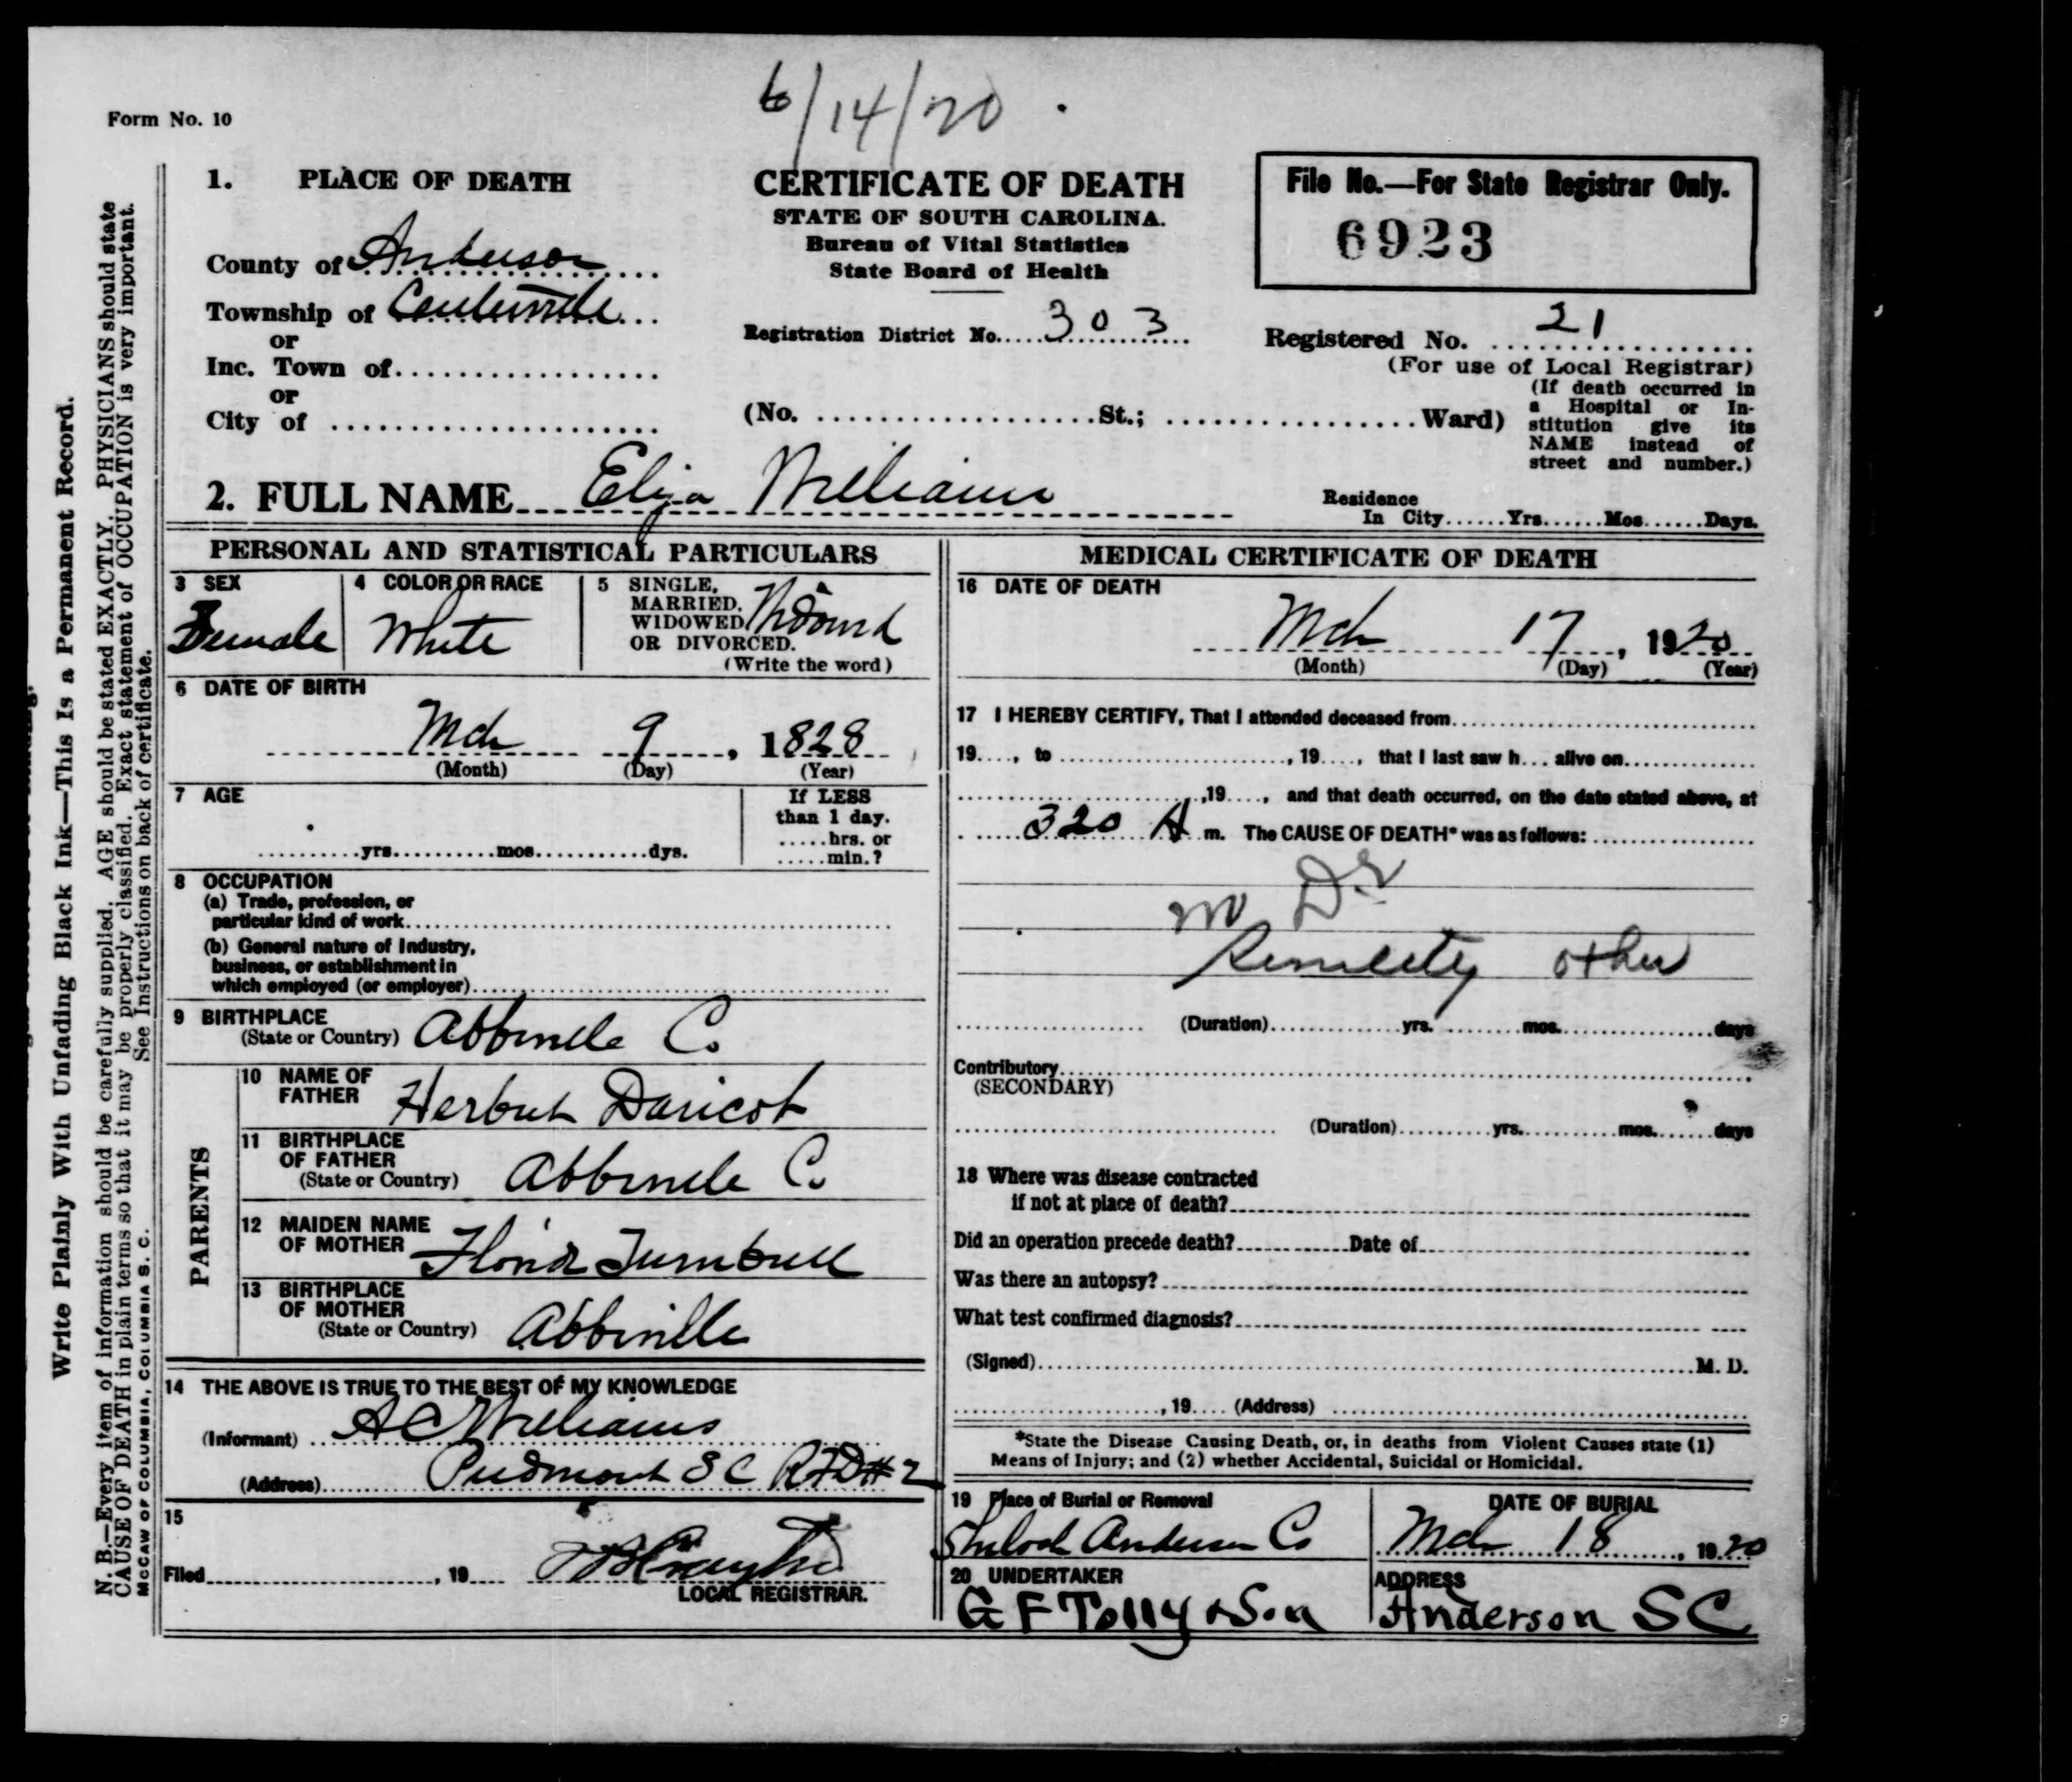 6/14/20
Form No. 10
1. PLACE OF DEATH
County of Anderson
Township of Centerville
or
Inc. Town of
or
City of
CERTIFICATE OF DEATH
STATE OF SOUTH CAROLINA.
Bureau of Vital Statistics
State Board of Health
Registration District No. 303
File No.—For State Registrar Only.
6923
Registered No. 21
(For use of Local Registrar)
(No. St.; Ward)
(If death occurred in
a Hospital or In-
stitution give its
NAME instead of
street and number.)
2. FULL NAME Eliza Williams
Residence
In City......Yrs......Mos......Days.
PERSONAL AND STATISTICAL PARTICULARS
3 SEX
Female
4 COLOR OR RACE
White
5 SINGLE,
MARRIED,
WIDOWED
OR DIVORCED.
(Write the word)
Widowed
6 DATE OF BIRTH
Mch 9, 1828
(Month) (Day) (Year)
7 AGE
yrs. mos. dys.
If LESS
than 1 day.
.....hrs. or
.....min.?
8 OCCUPATION
(a) Trade, profession, or
particular kind of work
(b) General nature of Industry,
business, or establishment in
which employed (or employer)
9 BIRTHPLACE
(State or Country) Abbeville C.
PARENTS
10 NAME OF
FATHER Herbert Daricot
11 BIRTHPLACE
OF FATHER
(State or Country) Abbeville C.
12 MAIDEN NAME
OF MOTHER Turnbull
13 BIRTHPLACE
OF MOTHER
(State or Country) Abbeville
14 THE ABOVE IS TRUE TO THE BEST OF MY KNOWLEDGE
(Informant) A C Williams
(Address) Piedmont S C RFD#2
15
Filed , 19
LOCAL REGISTRAR.
MEDICAL CERTIFICATE OF DEATH
16 DATE OF DEATH
Mch 17, 1920
(Month) (Day) (Year)
17 I HEREBY CERTIFY, That I attended deceased from
19...., to , 19...., that I last saw h... alive on
,19...., and that death occurred, on the date stated above, at
320 A m. The CAUSE OF DEATH* was as follows:
no Dr
Senility other
(Duration) yrs. mos. days
Contributory
(SECONDARY)
(Duration) yrs. mos. days
18 Where was disease contracted
if not at place of death?
Did an operation precede death? Date of
Was there an autopsy?
What test confirmed diagnosis?
(Signed) M. D.
, 19.... (Address)
*State the Disease Causing Death, or, in deaths from Violent Causes state (1)
Means of Injury; and (2) whether Accidental, Suicidal or Homicidal.
19 Place of Burial or Removal
Shiloh Anderson Co
DATE OF BURIAL
Mch 18, 1920
20 UNDERTAKER
G F Tolly & Son
ADDRESS
Anderson SC
Write Plainly With Unfading Black Ink—This Is a Permanent Record.
N. B.—Every item of information should be carefully supplied. AGE should be stated EXACTLY. PHYSICIANS should state
CAUSE OF DEATH in plain terms so that it may be properly classified. Exact statement of OCCUPATION is very important.
See Instructions on back of certificate.
McCAW OF COLUMBIA, COLUMBIA S. C.